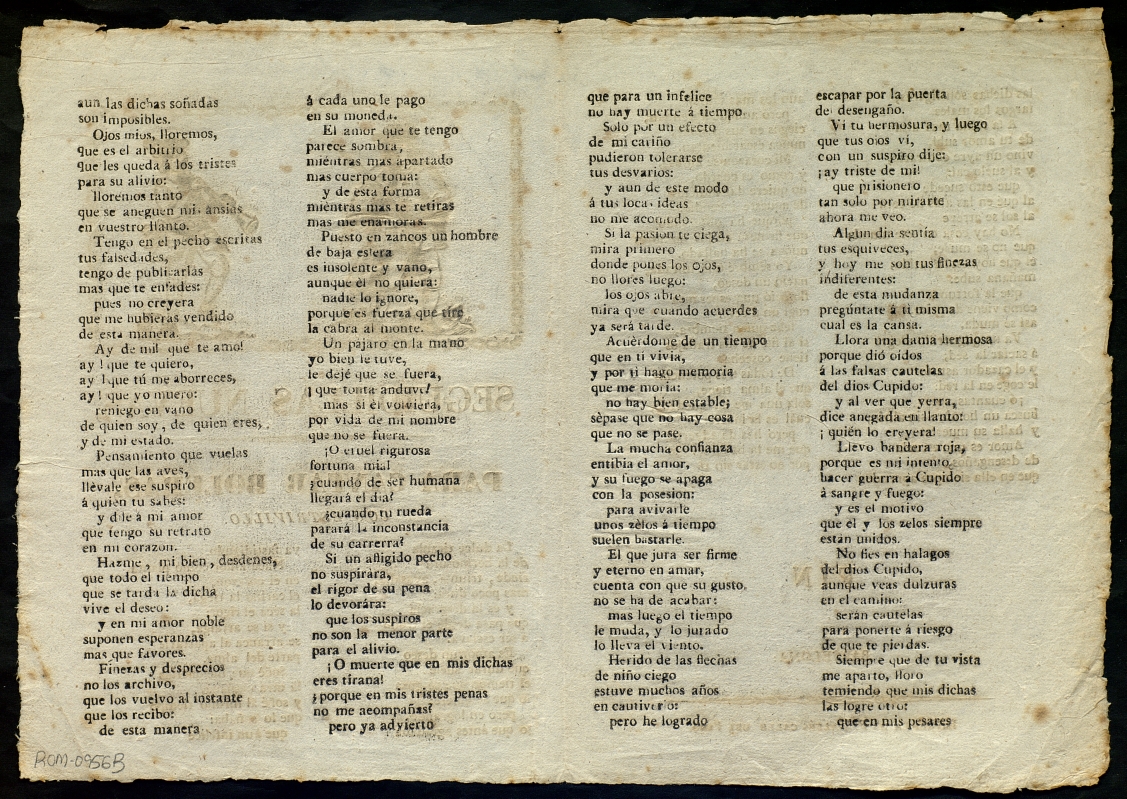 aun las dichas soñadas
son imposibles.
Ojos mios, lloremos,
que es el arbitrio
que les queda á los tristes
para su alivio:
lloremos tanto
que se aneguen mis ansias
en vuestro llanto.
Tengo en el pecho escritas
tus falsedades,
tengo de publicarlas
mas que te enfades:
pues no creyera
que me hubieras vendido
de esta manera.
Ay de mi! que te amo!
ay! que te quiero,
ay! que tú me aborreces,
ay! que yo muero:
reniego en vano
de quien soy, de quien eres,
y de mi estado.
Pensamiento que vuelas
mas que las aves,
llévale ese suspiro
á quien tu sabes:
y dile á mi amor
que tengo su retrato
en mi corazon.
Hazme, mi bien, desdenes,
que todo el tiempo
que se tarda la dicha
vive el deseo:
y en mi amor noble
suponen esperanzas
mas que favores.
Finezas y desprecios
no los archivo,
que los vuelvo al instante
que los recibo:
de esta manera
á cada uno le pago
en su moneda.
El amor que te tengo
parece sombra,
miéntras mas apartado
mas cuerpo toma:
y de esta forma
mientras mas te retiras
mas me enamoras.
Puesto en zancos un hombre
de baja esfera
es insolente y vano,
aunque él no quiera:
nadie lo ignore,
porque es fuerza que tire
la cabra al monte.
Un pajaro en la mano
yo bien le tuve,
le dejé que se fuera,
¡que tonta anduve!
mas si él volviera,
por vida de mi nombre
que no se fuera.
¡O cruel rigurosa
fortuna mia!
¿cuando de ser humana
llegará el dia?
¿cuando tu rueda
parará la inconstancia
de su carrerra?
Si un afligido pecho
no suspirára,
el rigor de su pena
lo devorára:
que los suspiros
no son la menor parte
para el alivio.
¡O muerte que en mis dichas
eres tirana!
¿porque en mis tristes penas
no me acompañas?
pero ya advierto
que para un infelice
no hay muerte á tiempo.
Solo por un efecto
de mi cariño
pudieron tolerarse
tus desvarios:
y aun de este modo
á tus locas ideas
no me acomodo.
Si la pasion te ciega,
mira primero
donde pones los ojos,
no llores luego:
los ojos abre,
mira que cuando acuerdes
ya será tarde.
Acuérdome de un tiempo
que en ti vivia,
y por ti hago memoria
que me moria:
no hay bien estable;
sèpase que no hay cosa
que no se pase.
La mucha confianza
entibia el amor,
y su fuego se apaga
con la posesion:
para avivarle
unos zèlos á tiempo
suelen bastarle.
El que jura ser firme
y eterno en amar,
cuenta con que su gusto
no se ha de acabar:
mas luego el tiempo
le muda, y lo jurado
lo lleva el viento.
Herido de las flechas
de niño ciego
estuve muchos años
en cautiverio:
pero he logrado
escapar por la puerta
del desengaño.
Vi tu hermosura, y luego
que tus ojos vi,
con un suspiro dije:
¡ay triste de mi!
que prisionero
tan solo por mirarte
ahora me veo.
Algun dia sentía
tus esquiveces,
y hoy me son tus finezas
indiferentes:
de esta mudanza
pregúntate á ti misma
cual es la cansa.
Llora una dama hermosa
porque dió oidos
á las falsas cautelas
del dios Cupido:
y al ver que yerra,
dice anegada en llanto:
¡quién lo creyera!
Llevo bandera roja,
porque es mi intento
hacer guerra á Cupido
á sangre y fuego:
y es el motivo
que él y los zelos siempre
están unidos.
No fies en halagos
del dios Cupido,
aunque veas dulzuras
en el camino:
serán cautelas
para ponerte á riesgo
de que te pierdas.
Siempre que de tu vista
me aparto, lloro
temiendo que mis dichas
las logre otro:
que en mis pesares
ROM-0956B